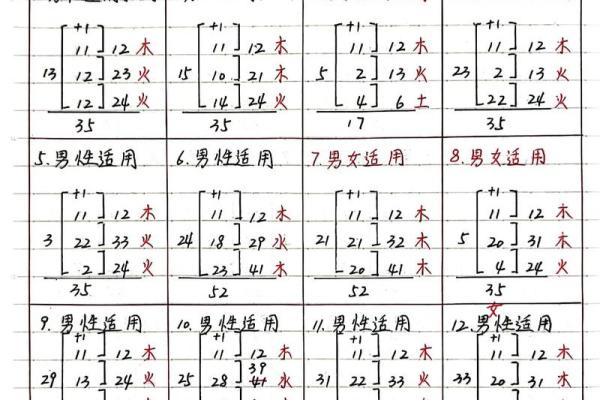 +1
11 12 木
13 12 23 火
12 24 火
35
+1
11 12 木
15 10 21 木
14 24 火
35
+1
11 12 木
5 2 13 火
4 6 土
17
+1
11 12 木
23 2 13 火
22 24 火
35
5.男性适用
+1
11 12 木
3 22 33 火
2 24 火
35
6.男性适用
+1
11 12 木
24 18 29 水
23 41 木
52
7.男女适用
+1
11 12 木
21 21 32 木
20 41 木
52
8.男女适用
+1
11 12 木
5 20 31 木
4 24 火
35
9.男性适用
+1
11 12 木
29 13 24 火
10.男性适用
+1
11 12 木
39
25 28 水
11.男性适用
+1
11 12 木
31 22 33 火
女
12.男性适用
+1
11 12 木
33 20 31 木